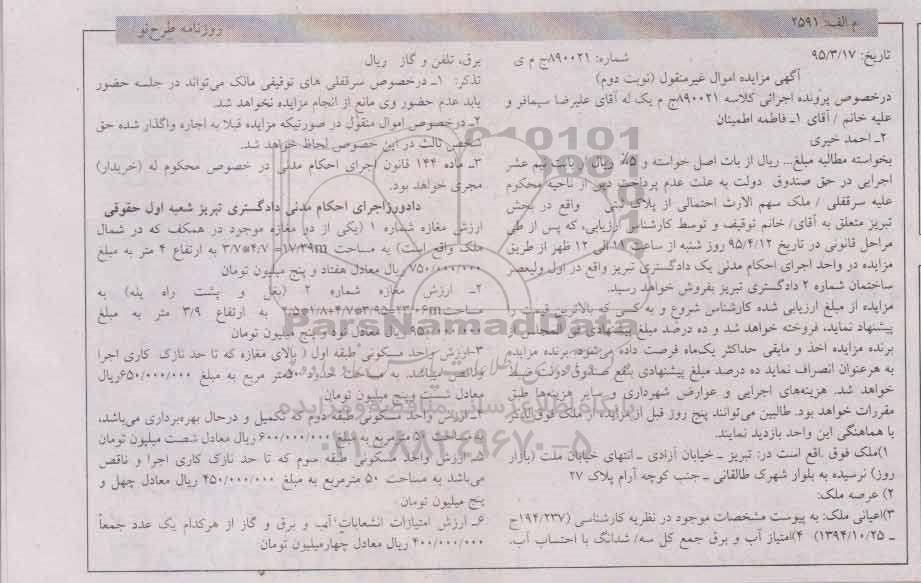 م الف: ۲۵۹۱
روزنامه طرح‌نو
تاریخ: ۹۵/۳/۱۷ شماره: ۸۹۰۰۲۱ج م ی
آگهی مزایده اموال غیرمنقول (نوبت دوم)
درخصوص پرونده اجرائی کلاسه ۸۹۰۰۲۱ج م یک له آقای علیرضا سیمافر و
علیه خانم / آقای ۱ـ فاطمه اطمینان
۲ـ احمد خیری
بخواسته مطالبه مبلغ... ریال از بات اصل خواسته و ۵٪ ریال از بابت نیم عشر
اجرایی در حق صندوق دولت به علت عدم پرداخت دیون از ناحیه محکوم
علیه سرقفلی / ملک سهم الارث احتمالی از پلاک ثبتی واقع در بخش
تبریز متعلق به آقای/ خانم توقیف و توسط کارشناس ارزیابی، که پس از طی
مراحل قانونی در تاریخ ۹۵/۴/۱۲ روز شنبه از ساعت ۱۱ الی ۱۲ ظهر از طریق
مزایده در واحد اجرای احکام مدنی یک دادگستری تبریز واقع در اول ولیعصر
ساختمان شماره ۲ دادگستری تبریز بفروش خواهد رسید.
مزایده از مبلغ ارزیابی شده کارشناس شروع و به کسی که بالاترین قیمت را
پیشنهاد نماید، فروخته خواهد شد و ده درصد مبلغ پیشنهادی فی المجلس از
برنده مزایده اخذ و مابقی حداکثر یک‌ماه فرصت داده می‌شود، برنده مزایده
به هرعنوان انصراف نماید ده درصد مبلغ پیشنهادی بنفع صندوق دولت ضبط
خواهد شد. هزینه‌های اجرایی و عوارض شهرداری و سایر هزینه‌ها طبق
مقررات خواهد بود. طالبین می‌توانند پنج روز قبل از مزایده از ملک فوق‌الذکر
با هماهنگی این واحد بازدید نمایند.
۱)ملک فوق .اقع است در: تبریز ـ خیابان آزادی ـ انتهای خیابان ملت (بازار
روز) نرسیده به بلوار شهرک طالقانی ـ جنب کوچه آرام پلاک ۲۷
۲) عرصه ملک:
۳)اعیانی ملک: به پیوست مشخصات موجود در نظریه کارشناسی (۱۹۴/۲۳۷ح
ـ ۱۳۹۴/۱۰/۲۵) ۴)امتیاز آب و برق جمع کل سه/ شدانگ با احتساب آب.
برق، تلفن و گاز ریال
تذکر: ۱ـ درخصوص سرقفلی های توقیفی مالک می‌تواند در جلسه حضور
یابد عدم حضور وی مانع از انجام مزایده نخواهد شد.
۲ـ درخصوص اموال منقول در صورتیکه مزایده قبلا به اجاره واگذار شده حق
شخص ثالث در این خصوص لحاظ خواهد شد.
۳ـ ماده ۱۴۴ قانون اجرای احکام مدنی در خصوص محکوم له (خریدار)
مجری خواهد بود.
دادورزاجرای احکام مدنی دادگستری تبریز شعبه اول حقوقی
ارزش مغازه شماره ۱ (یکی از دو مغازه موجود در همکف که در شمال
ملک واقع است) به مساحت ۳/۷*۴/۷=۱۷/۳۹m به ارتفاع ۴ متر به مبلغ
۷۵۰/۰۰۰/۰۰۰ ریال معادل هفتاد و پنج میلیون تومان
۲ـ ارزش مغازه شماره ۲ (بغل و پشت راه پله) به
مساحت ۲/۵*۱/۸+۴/۷*۳/۹۵=۲۳/۰۶m به ارتفاع ۳/۹ متر به مبلغ
ریال معادل نود و پنج میلیون تومان
۳ـ ارزش واحد مسکونی طبقه اول ( بالای مغازه که تا حد نازک کاری اجرا
و ناقص میباشد. به مساحت حدود ۵۰متر مربع به مبلغ ۶۵۰/۰۰۰/۰۰۰ریال
معادل شصت وپنج میلیون تومان
۴ـ ارزش واحد مسکونی طبقه دوم که تکمیل و درحال بهره‌برداری می‌باشد،
به مساحت ۵۰ مترمربع به مبلغ ۶۰۰/۰۰۰/۰۰۰ ریال معادل شصت میلیون تومان
۵ـ ارزش واحد مسکونی طبقه سوم که تا حد نازک کاری اجرا و ناقص
می‌باشد به مساحت ۵۰ مترمربع به مبلغ ۴۵۰/۰۰۰/۰۰۰ ریال معادل چهل و
پنج میلیون تومان
۶ـ ارزش امتیازات انشعابات آب و برق و گاز از هرکدام یک عدد جمعاً
۴۰۰/۰۰۰/۰۰۰ ریال معادل چهارمیلیون تومان
ParsNamadData
۰۲۱-۸۸۳۴۹۶۷۰-۵